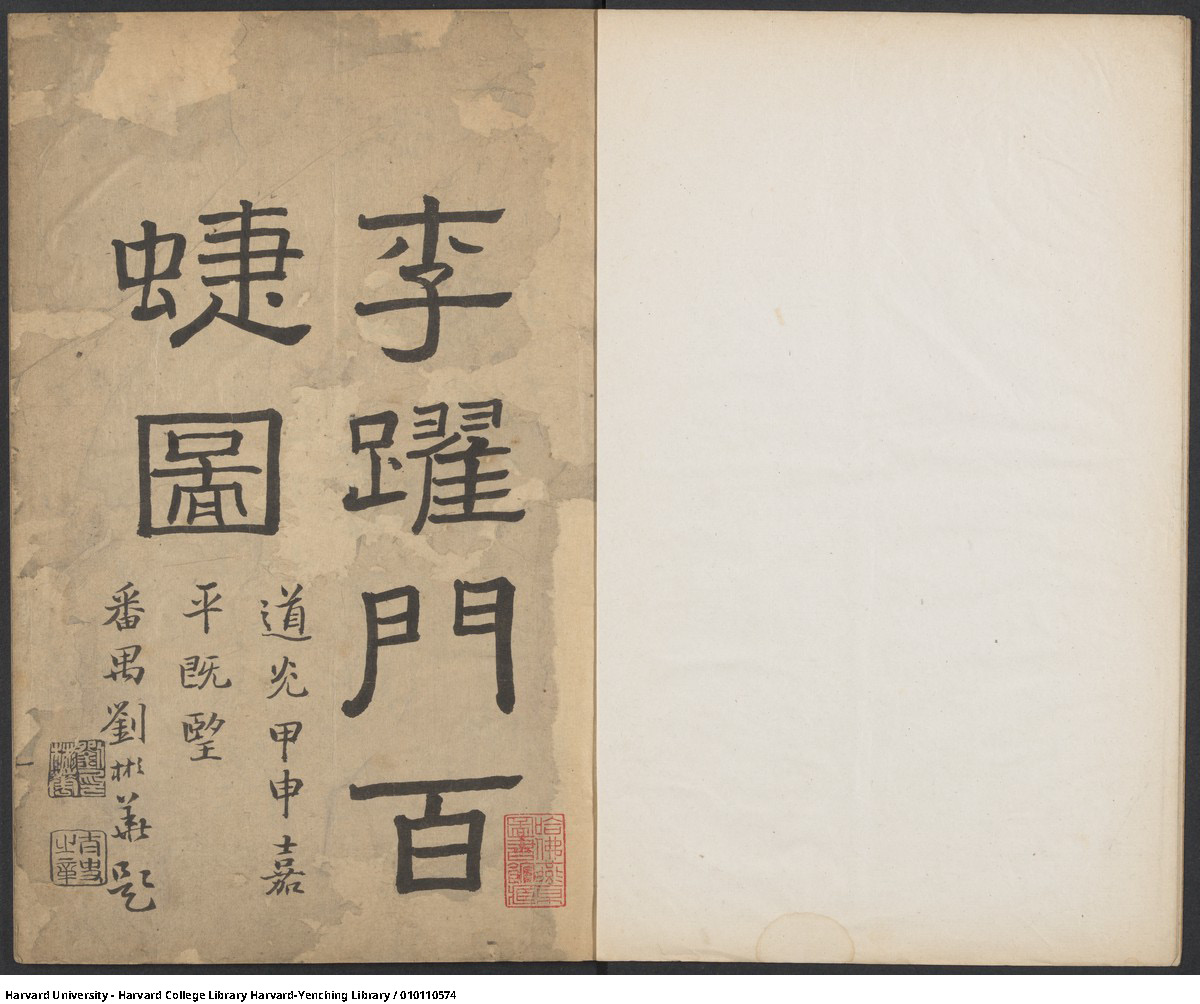 李躍門百
蜨圖
道光甲申嘉
平既朢
番禺劉彬華題
劉印
彬華
哈佛燕京
圖書館藏
Harvard University - Harvard College Library Harvard-Yenching Library / 010110574